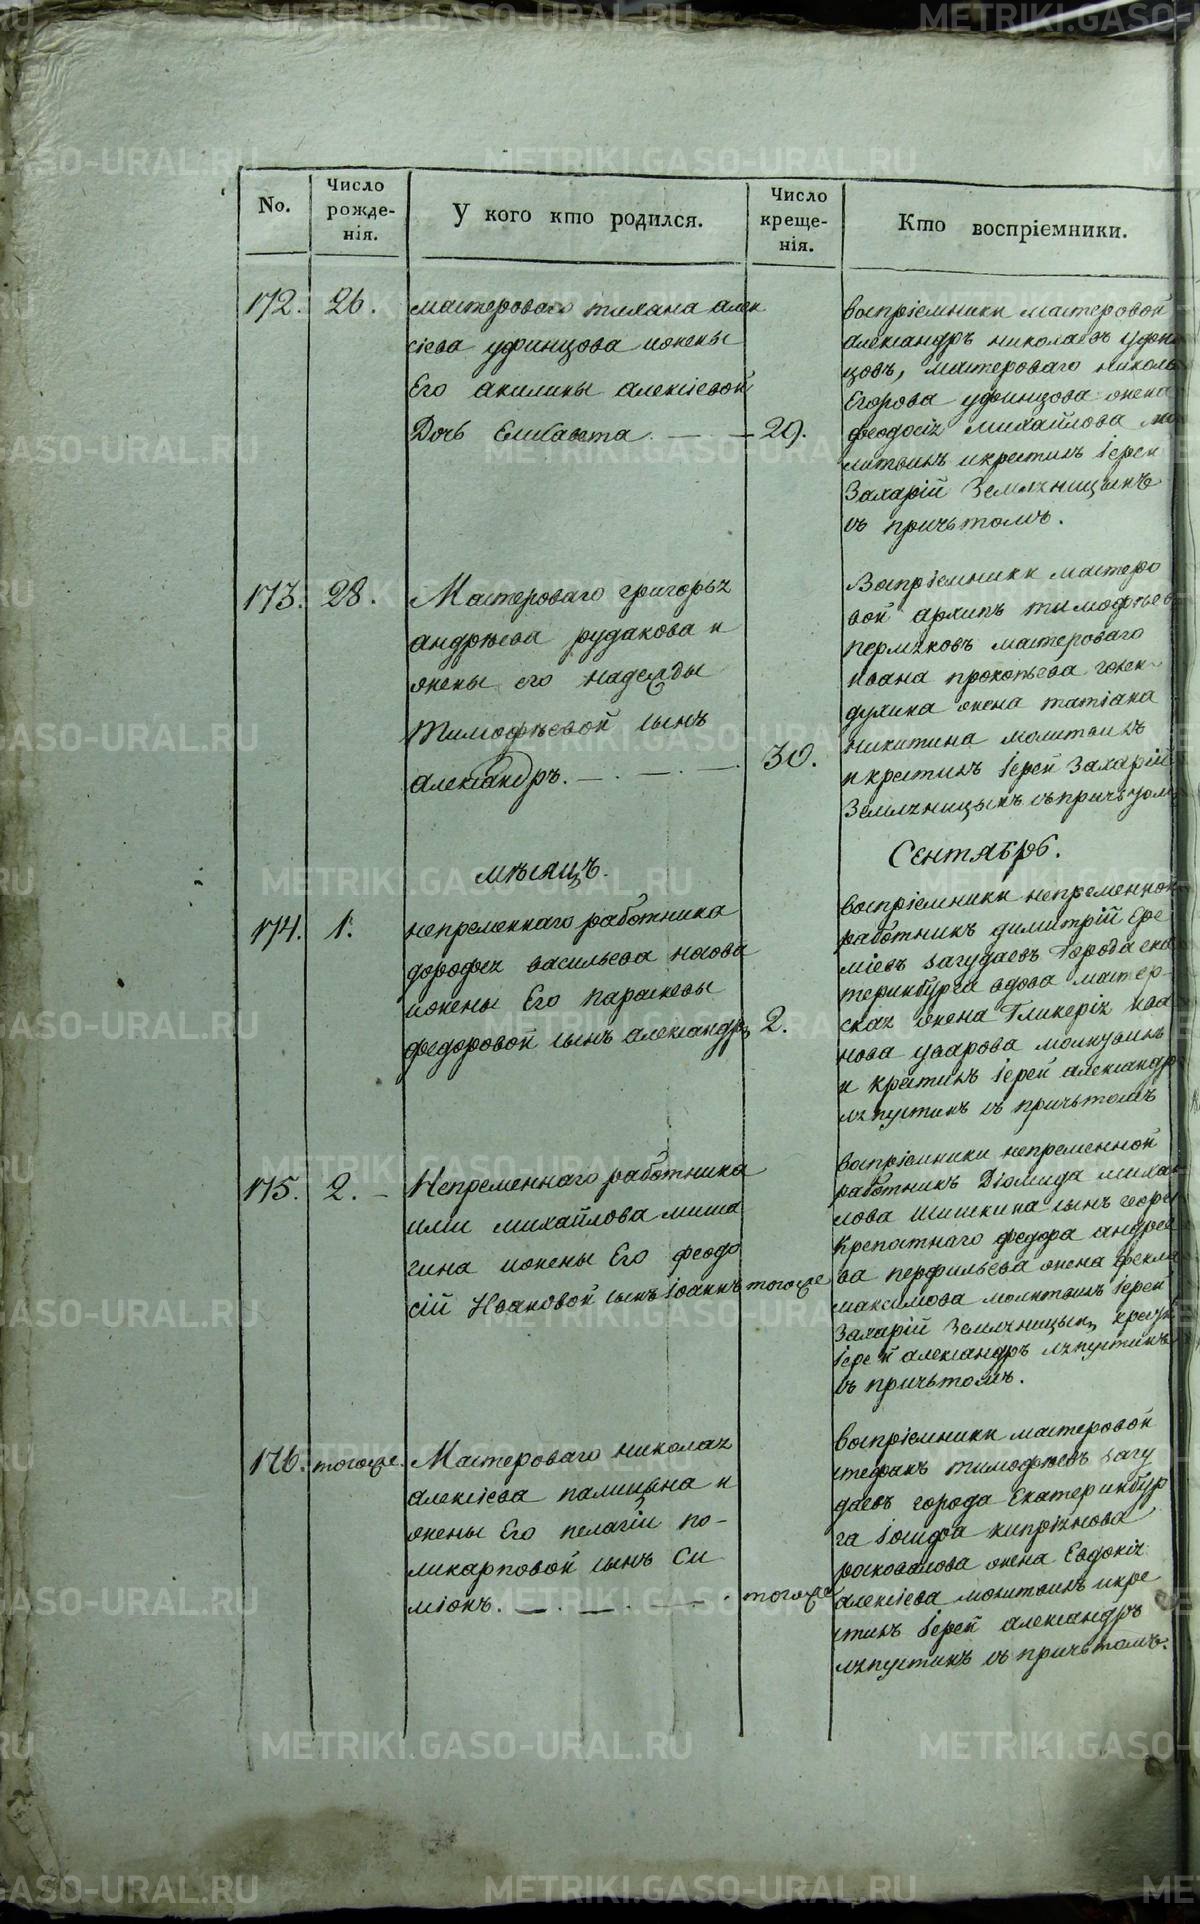 No.
Число рожде-
нія.
У кого кто родился.
Число креще-
нія.
Кто воспріемники.
172.
26.
мастероваго тихана алек
сіева уфинцова ижены
Его акилины алексіевой
Дочь Елисавета
29.
воспріемники мастеровой
александръ николаевъ уфин
цовъ, мастероваго никола
Егорова уфинцова жена
феодосія михайлова мо
литвилъ икрестилъ іерей
Захарій Земляницынъ
съ причьтомъ.
173.
28.
Мастероваго григорья
андрѣева рудакова и
жены его надежды
Тимофѣевой сынъ
александръ.
30.
Воспріемники мастеро
вой архипъ тимофѣевъ
пермяковъ мастероваго
ивана прокопьева
жена татіана
никитина молитвилъ
и крестилъ іерей Захарій
Земляницынъ съпричьтомъ
мѣсяцъ.
Сентябрь.
174.
1.
непременнаго работника
дорофея васильева носова
ижены Его параскевы
федоровой сынъ александръ
2.
воспріемники непременной
работникъ димитрій Ере
міевъ загудаевъ Города ека
теринбурга вдова мастер-
ская жена Гликерія ива
нова уварова молитвилъ
и крестилъ іерей александръ
ляпустинъ съ причьтомъ
175.
2.
Непременнаго работника
иліи михайлова миша
гина ижены Его феодо
сій Ивановой сынъ іоаннъ
тогоже
воспріемники непременной
работникъ Діомида михай
лова Шишкина сынъ георгій
Крепостнаго федора андрее
ва перфильева жена фекла
максимова молитвилъ іерей
Захарій Земляницын, крестилъ
іерей александръ ляпустинъ
съ причьтомъ.
176.
тогоже.
Мастероваго николая
алексіева палицына и
жены Его пелагіи по-
ликарповой сынъ Си
міонъ.
тогоже
воспріемники мастеровой
стефанъ тимофѣевъ загу
даевъ города Екатеринбур
га іосифа кипріянова
росковалова жена Евдокія
алексіева молитвилъ икре
стилъ іерей александръ
ляпустинъ съ причьтомъ.
METRIKI.GASO-URAL.RU